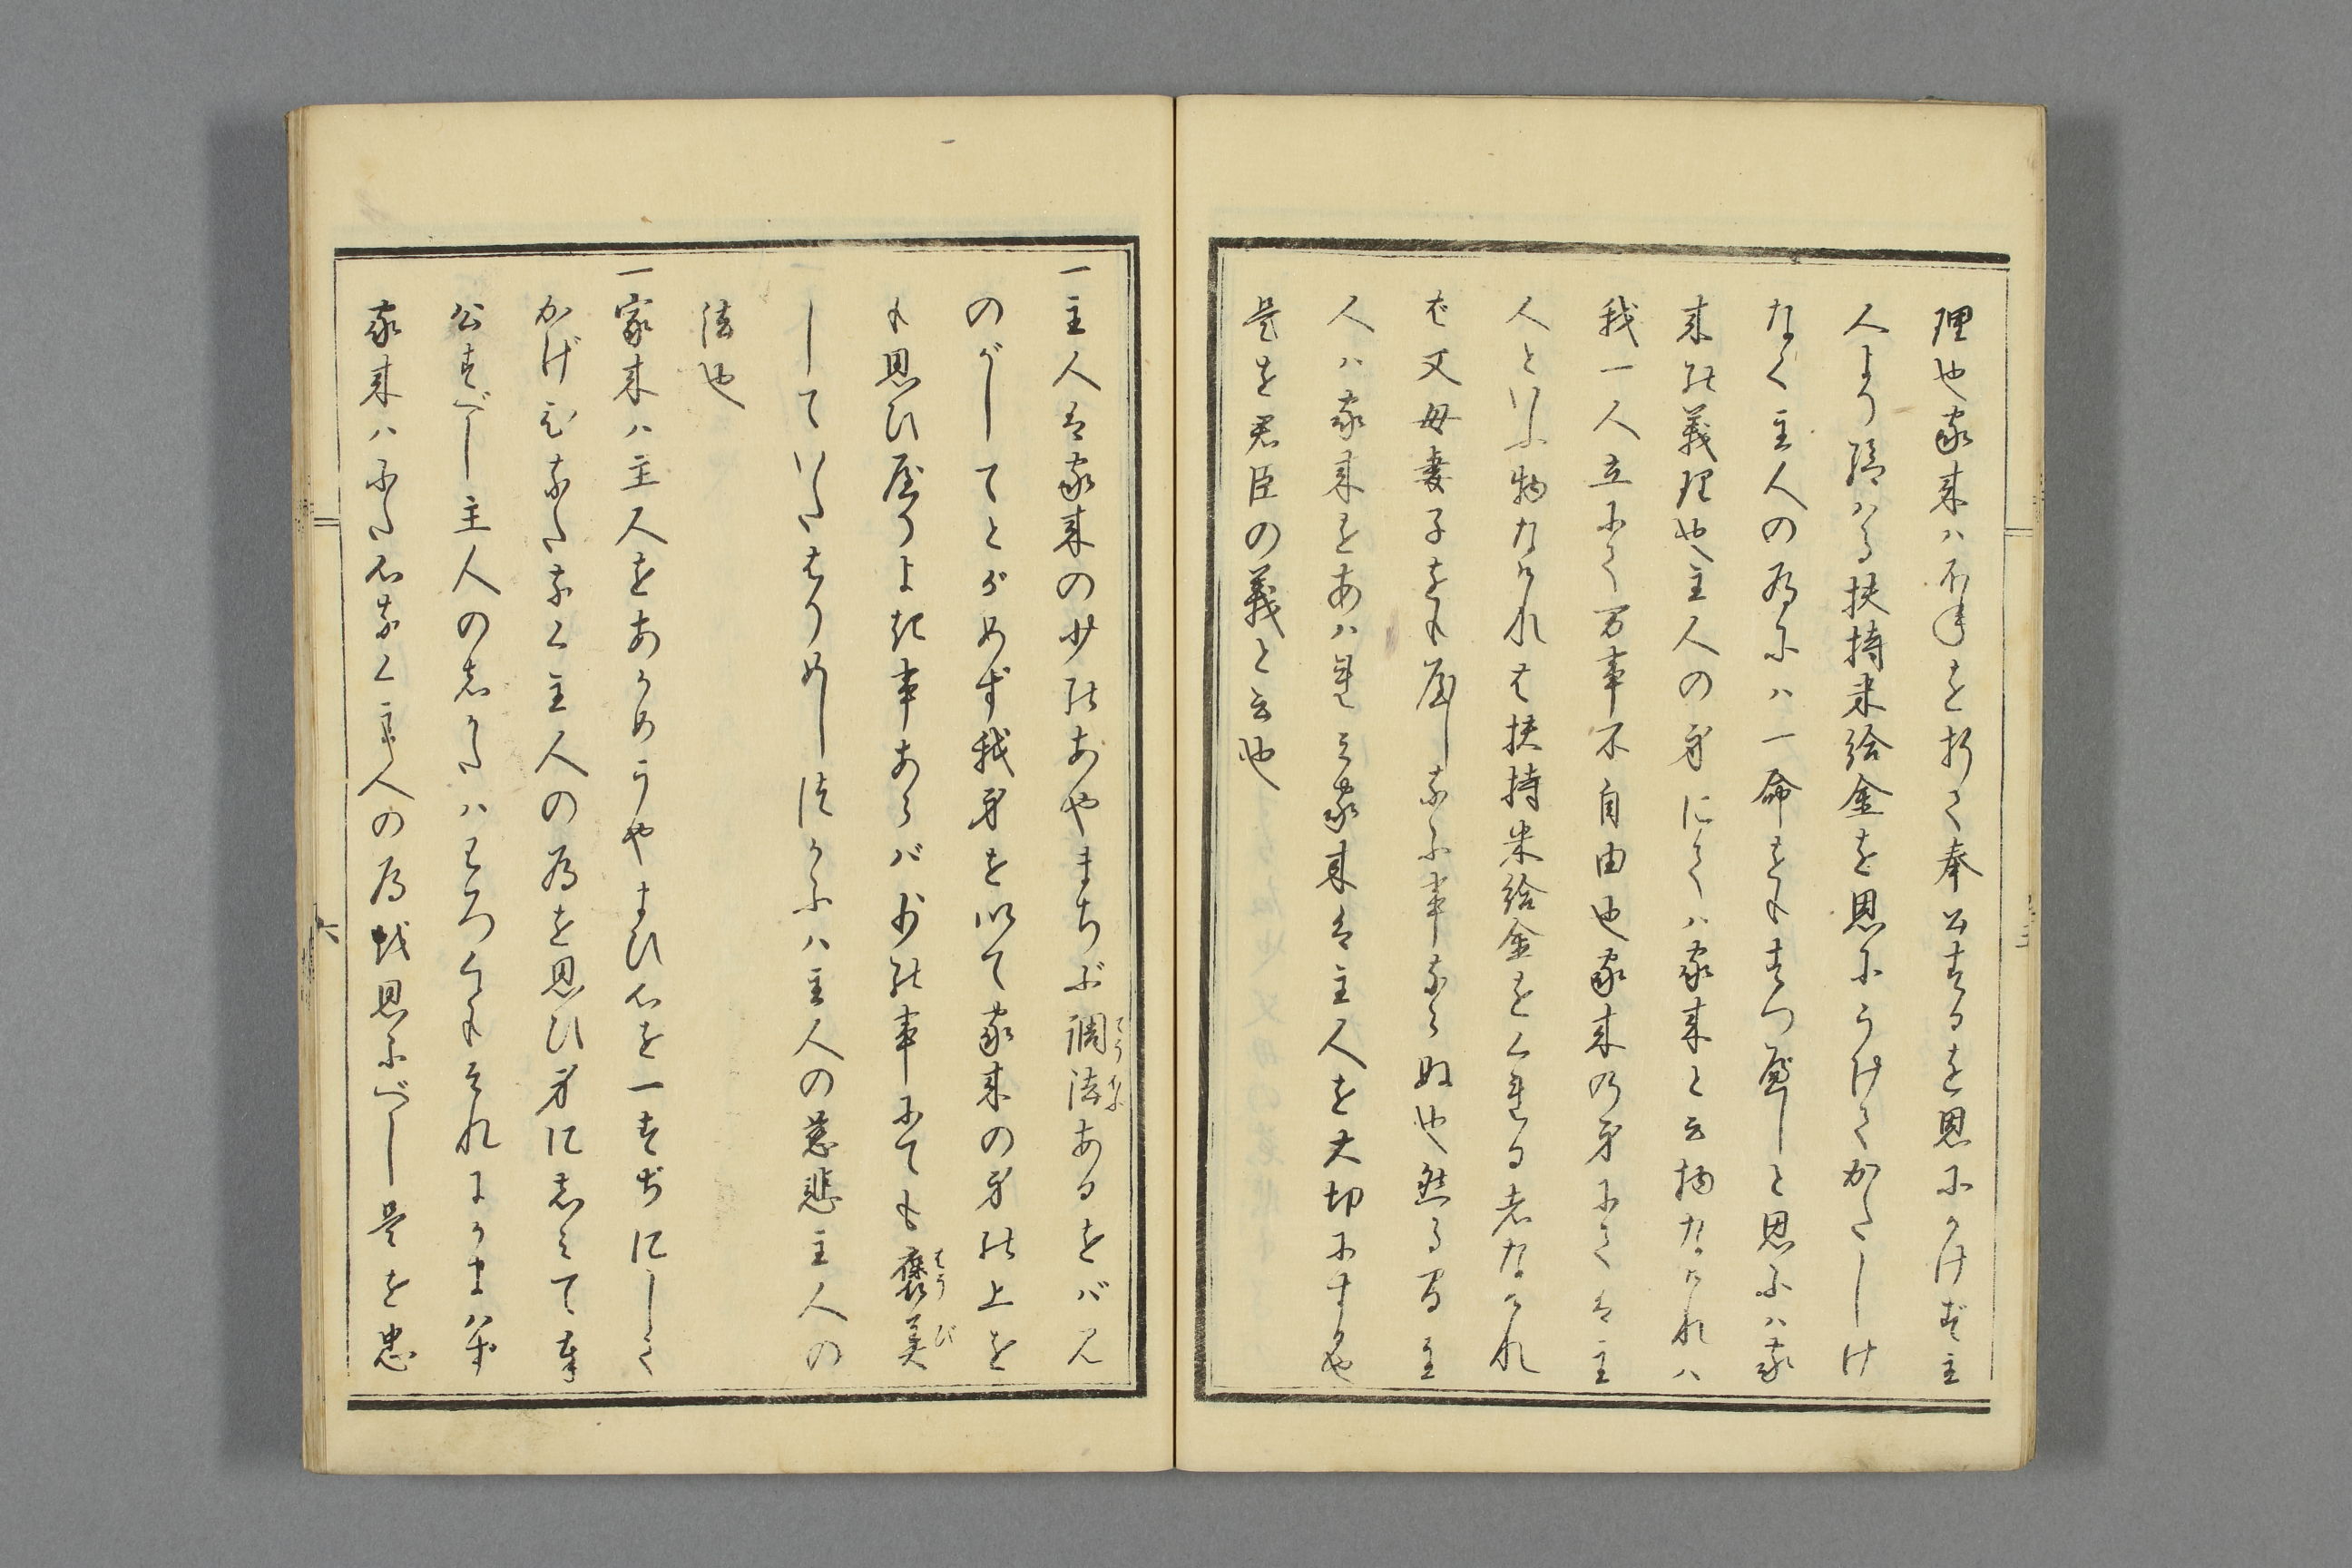 理也家来ハ骨を折て奉公するを恩にかけず主
人より給ハる扶持米給金を恩にうけてかたじけ
なく主人の為にハ一命をもすつ べしと思ふハ家
来の義理也主人の身にてハ家来と云物なけれハ
我一人立にて万事不自由也家来の身にてハ主
人といふ物なけれは扶持米給金をくるゝ者なけれ
ば父母妻子をも養ふ事ならぬ也然る間主
人ハ家来をあハれミ家来ハ主人を大切にする也
是を君臣の義と云也
一主人ハ家来の少のあやまちぶ調法あるをバ見
のがしてとがめず我身を以て家来の身の上を
も思ひやりよき事あらバ少の事にても褒美
てうはふ
はうび
していたはりめしつかふハ主人の慈悲主人の
法也
一家来ハ主人をあがめうやまひ心を一すぢにして
かげひなたなく主人の為を思ひ身にしみて奉
公すべし主人のしかたハわろくもそれにかまハず
家来ハふた心なく主人の為を思ふべし是を忠
六